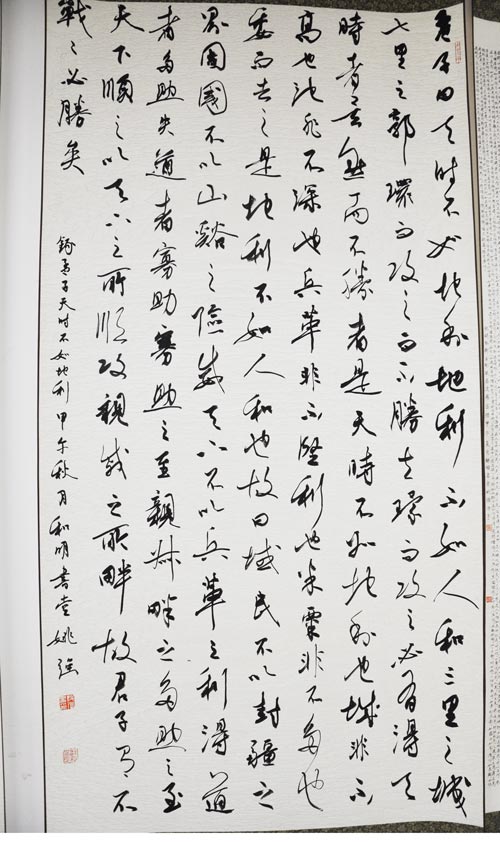 孟子曰天时不如地利地利不如人和三里之城
七里之郭環而攻之而不勝夫環而攻之必有得天
時者矣然而不勝者是天時不如地利也城非不
高也池非不深也兵革非不堅利也米粟非不多也
委而去之是地利不如人和也故曰域民不以封疆之
界固國不以山谿之險威天下不以兵革之利得道
者多助失道者寡助寡助之至親戚畔之多助之至
天下順之以天下之所順攻親戚之所畔故君子有不
戰戰必勝矣
錄孟子天时不如地利甲午秋月和明書堂姚强